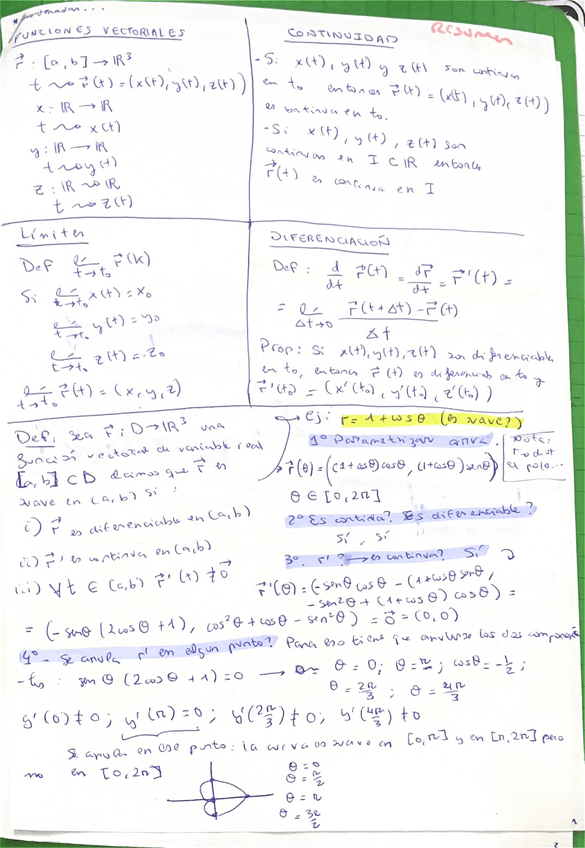 FUNCIONES VECTORIALES
r⃗ : [a,b] → ℝ³
t ⇝ r⃗(t) = (x(t), y(t), z(t))
x : ℝ → ℝ
t ⇝ x(t)
y : ℝ → ℝ
t ⇝ y(t)
z : ℝ ⇝ ℝ
t ⇝ z(t)
RESUMEN
CONTINUIDAD
- Si x(t), y(t) y z(t) son continuas
en t₀ entonces r⃗(t) = (x(t), y(t), z(t))
es continua en t₀.
- Si x(t), y(t), z(t) son
continuas en I ⊂ ℝ entonces
r⃗(t) es continua en I
Límites
Def lim t→t₀ r⃗(t)
Si lim t→t₀ x(t) = x₀
lim t→t₀ y(t) = y₀
lim t→t₀ z(t) = z₀
lim t→t₀ r⃗(t) = (x, y, z)
DIFERENCIACIÓN
Def : d/dt r⃗(t) = dr⃗/dt = r⃗'(t) =
= lim Δt→0 (r⃗(t+Δt) - r⃗(t))/Δt
Prop: Si x(t), y(t), z(t) son diferenciables
en t₀, entonces r⃗(t) es diferenciable en t₀ y
r⃗'(t₀) = (x'(t₀), y'(t₀), z'(t₀))
Def: sea r⃗ : D → ℝ³ una
función vectorial de variable real
[a,b] ⊂ D decimos que r⃗ es
suave en (a,b) si :
i) r⃗ es diferenciable en (a,b)
ii) r⃗' es continua en (a,b)
iii) ∀t ∈ (a,b) r⃗'(t) ≠ 0⃗
→ ej: r = 1 + cos θ (es suave?)
1º Parametrizar curva.
Nota:
r = dist
al polo...
r⃗(θ) = ((1+cosθ)cosθ, (1+cosθ)senθ)
θ ∈ [0, 2π]
2º Es continua? Es diferenciable?
sí, sí
3º. r'? → es continua? Sí
r⃗'(θ) = (-senθ cosθ - (1+cosθ)senθ,
-sen²θ + (1+cosθ)cosθ) =
= (-senθ (2cosθ + 1), cos²θ + cosθ - sen²θ) = 0⃗ = (0,0)
4º - Se anula r' en algún punto? Para eso tiene que anularse las dos componen
-tes: senθ (2cosθ + 1) = 0 → θ = 0; θ = π; cosθ = -1/2;
θ = 2π/3 ; θ = 4π/3
y'(0) ≠ 0 ; y'(π) = 0 ; y'(2π/3) ≠ 0; y'(4π/3) ≠ 0
Se anula en ese punto: la curva es suave en [0,π] y en [π,2π] pero
no en [0,2π]
θ = 0
θ = π/2
θ = π
θ = 3π/2
1
2